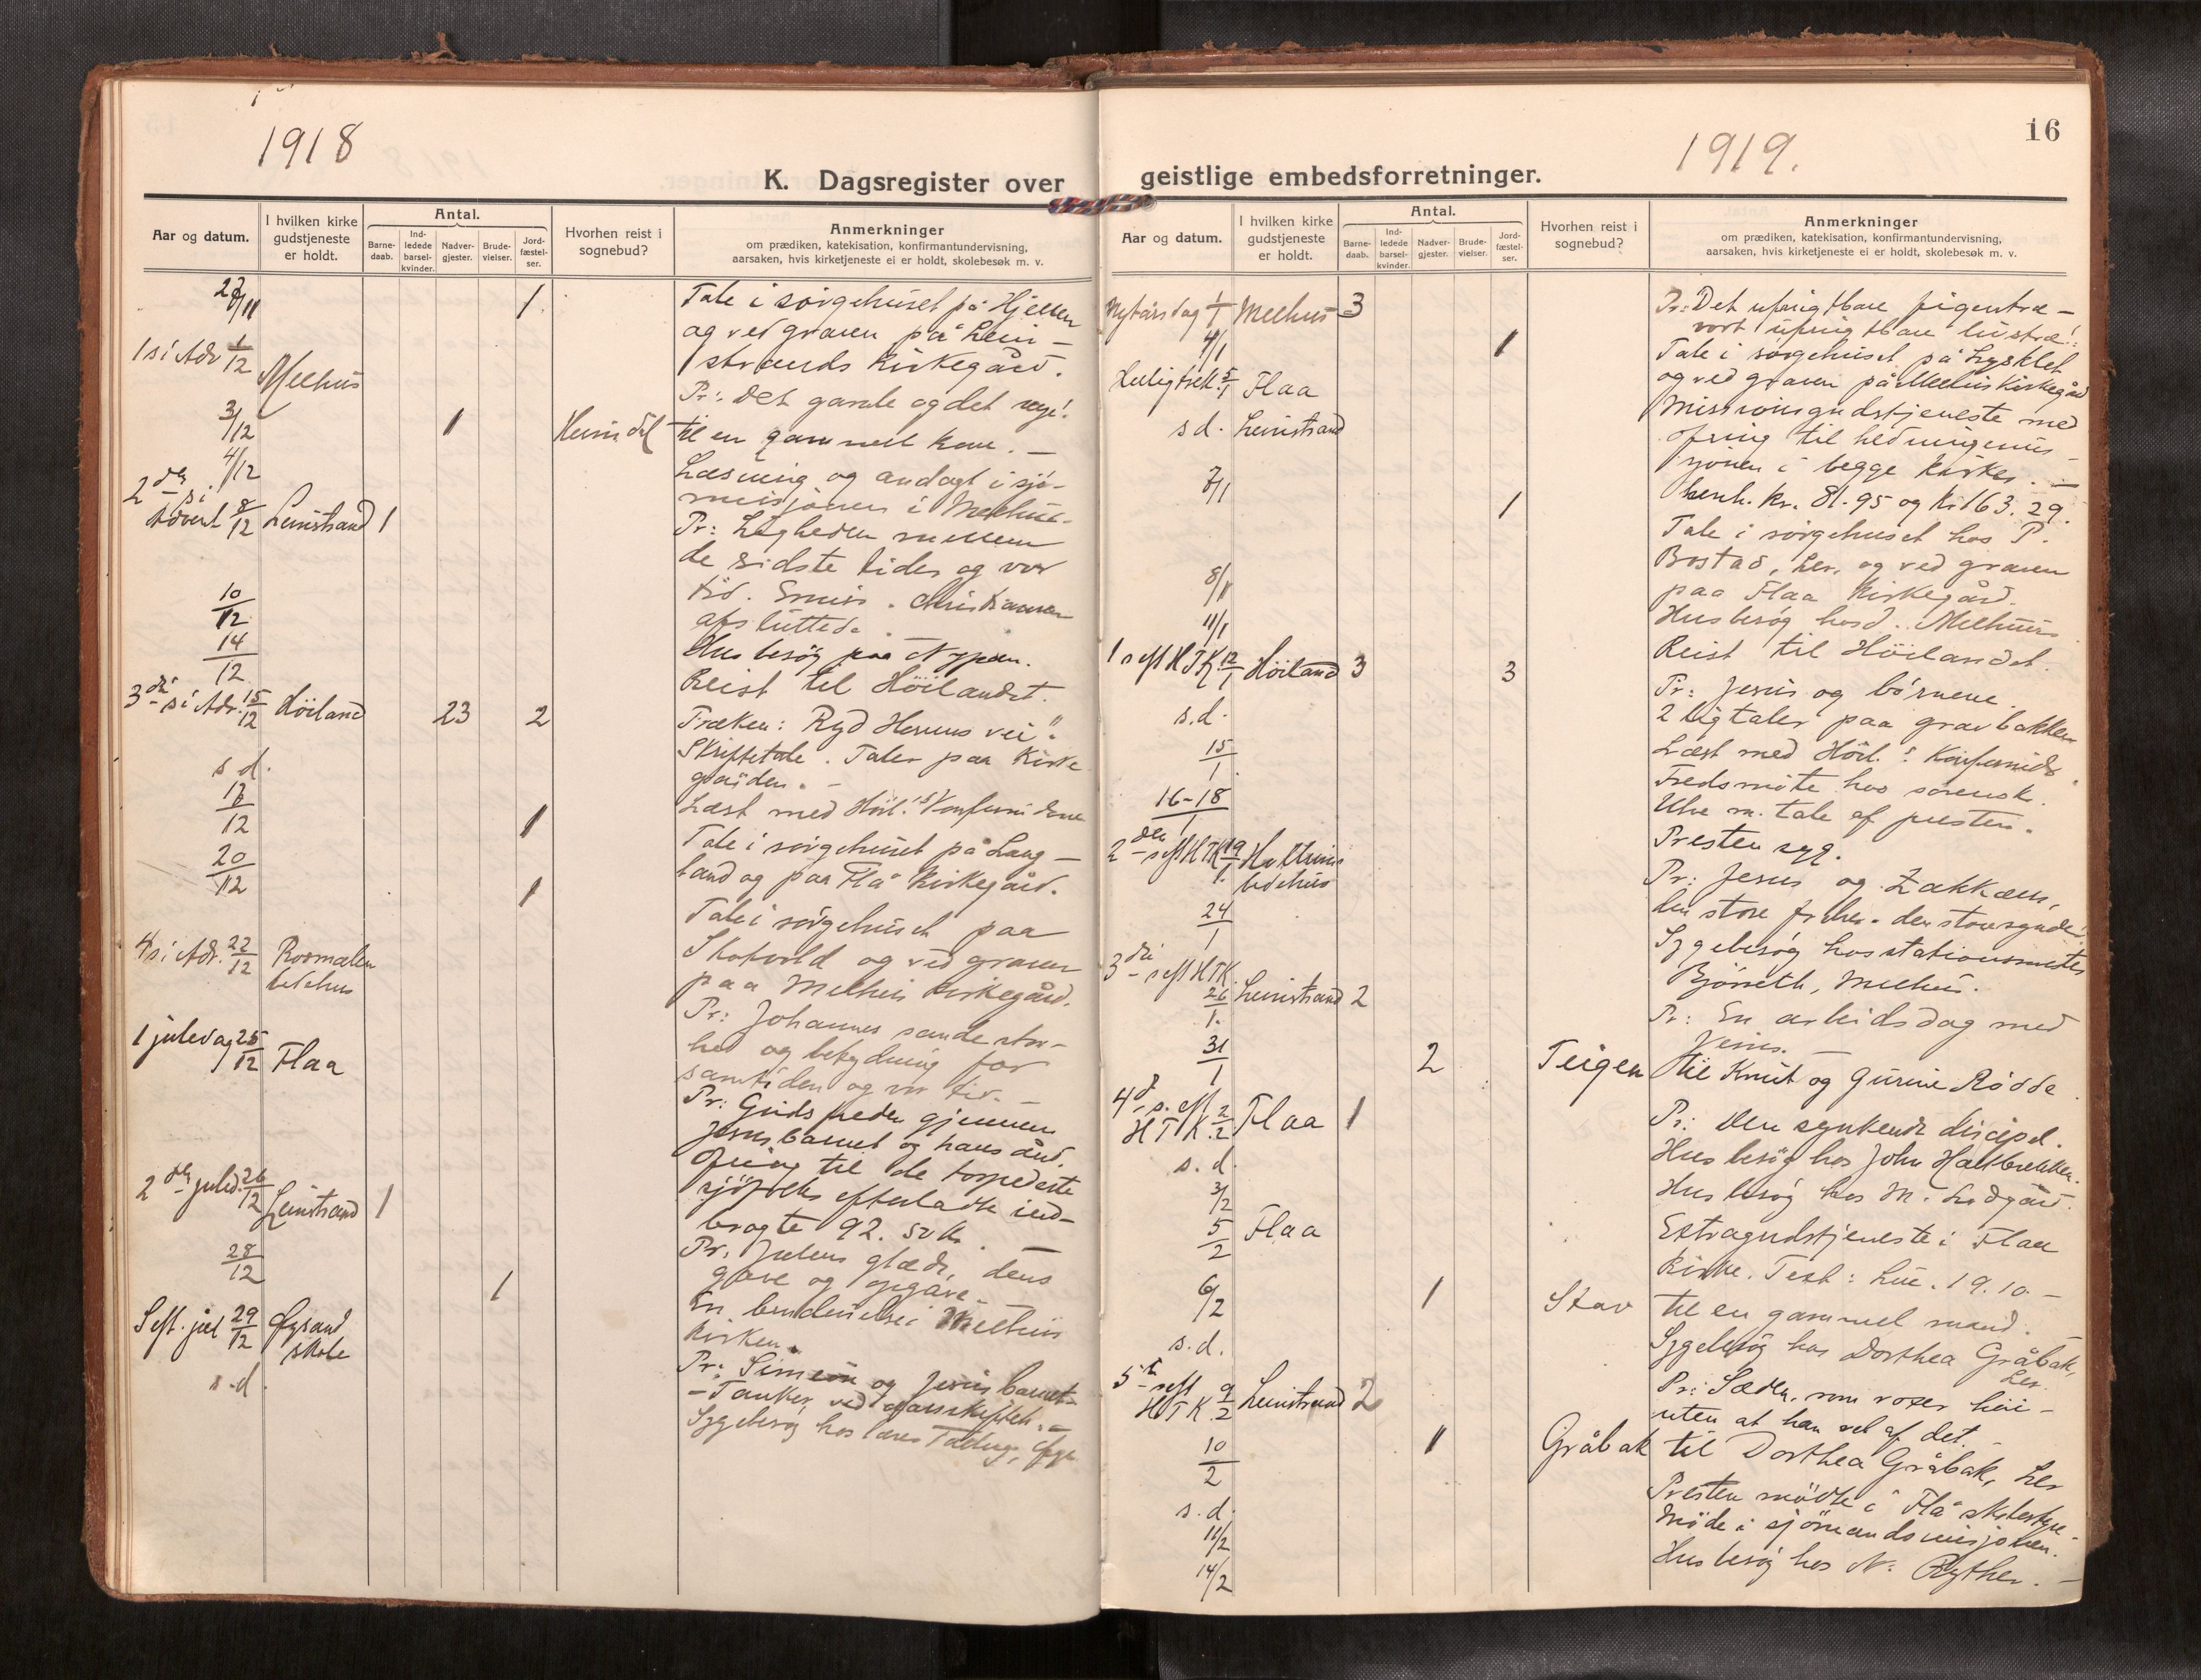 1918
K. Dagsregister over
Aar og datum.
I hvilken kirke
gudstjeneste
er holdt.
Antal.
Barne-
daab.
Ind-
ledede
barsel-
kvinder.
Nadver-
gjester.
Brude-
vielser.
Jord-
fæstel-
ser.
Hvorhen reist i
sognebud?
Anmerkninger
om prædiken, katekisation, konfirmantundervisning,
aarsaken, hvis kirketjeneste ei er holdt, skolebesøk m. v.
1 Tale i sørgehuset på
og ved graven på Lein-
strands kirkegård.
1 s i Adv 1/12 Melhus
Pr: Det gamle og det nye!
3/12 1 Heimdal til en gammel kone. –
4/12 Læsning og andagt i sjø-
misjonen i Melhus.
2den s i
Advent 8/12 Leinstrand 1 Pr: Ligheden mellem
de sidste tider og vor
tid. Emis. Christiansen
afsluttede.
10/12 Husbesøg paa Nypan.
14/12 Reist til Höilandet.
3die s i Adv. 15/12 Höiland 23 2 Præken: Ryd Herrens vei".
Skriftetale. Taler paa Kirke
gaarden. –
s d. Læst med Höil.'s Konfirmidene
1 Tale i sørgehuset på Lang-
land og paa Flå Kirkegård.
20/12 1 Tale i sørgehuset paa
og ved graven
paa Melhus kirkegård.
4 s i Adv. 22/12 Rosmælen
bedehus Pr: Johannes sande stor-
hed og betydning for
samtiden og vor tid. –
1 juledag 25/12 Flaa Pr: Guds fred gjennem
Jesusbarnet og hans ånd.
Ofring til de torpederte
sjöfolks efterladte ind-
bragte 92.
2den juled. 26/12 Leinstrand 1 Pr. Julens glæde, dens
gave og opgave. –
28/12 1 En i Melhus
kirken.
S eft. jul 29/12 Øysand
skole Pr: Simeon og Jesusbarnet –
– Tanker ved aarsskiftet. –
s.d. Sygebesøg hos
16
1919.
geistlige embedsforretninger.
Aar og datum.
I hvilken kirke
gudstjeneste
er holdt.
Antal.
Barne-
daab.
Ind-
ledede
barsel-
kvinder.
Nadver-
gjester.
Brude-
vielser.
Jord-
fæstel-
ser.
Hvorhen reist i
sognebud?
Anmerkninger
om prædiken, katekisation, konfirmantundervisning,
aarsaken, hvis kirketjeneste ei er holdt, skolebesøk m. v.
Nytårsdag 1/1 Melhus 3 Pr: Det ufrugtbare figentræ –
vort ufrugtbare livstræ!
4/1 1 Tale i sørgehuset på
og ved graven på Melhus kirkegård
5/1 Flaa Missionsgudstjeneste med
s d. Leinstrand ofring til hedningemis-
sjonen i begge kirker. –
henh. kr. 81.95 og kr 163.29.
7/1 1 Tale i sørgehuset hos P.
Bostad, Ler, og ved graven
paa Flaa Kirkegård.
8/1 Husbesøg Melhus
11/1 Reist til Höilandet.
1 s eft HTK. 12/1 Höiland 3 3 Pr: Jesus og börnene.
2 ligtaler paa gravbakken
s.d. Læst med Höil.s Konfirmider.
15/1 Fredsmöte hos sorensk.
m. tale af presten.
16–18/1 Presten syg.
2den s eft HTK 19/1
bedehus Pr: Jesus og Zakkæus,
den store frelser – den store synder!
24/1 Sygebesøg hos stationsmester
Melhus.
3die s eft HTK.
26/1 Leinstrand 2 Pr: En arbeidsdag med
Jesus.
31/1 2 Teigen til Knut og Gurine Rödde.
4d s. eft
HTK. 2/2 Flaa 1 Pr: Den synkende discipel.
s. d. Husbesøg hos John
3/2 Husbesøg hos M. Lodgård.
5/2 Flaa Extragudstjeneste i Flaa
Kirke. Text: Luc. 19.10. –
6/2 1 Stav til en gammel mand.
s.d. Sygebesøg hos Dorthea Gråbak,
Ler.
5te s eft
HTK. 9/2 Leinstrand 2 Pr: Sæden, som voxer
uten at han vet af det.
10/2 1 Gråbak til Dorthea Gråbak, Ler
s. d. Presten mödte i Flå skolestyre.
11/2 Möde i sjömandsmisjonen.
14/2 Husbesøg hos N. –